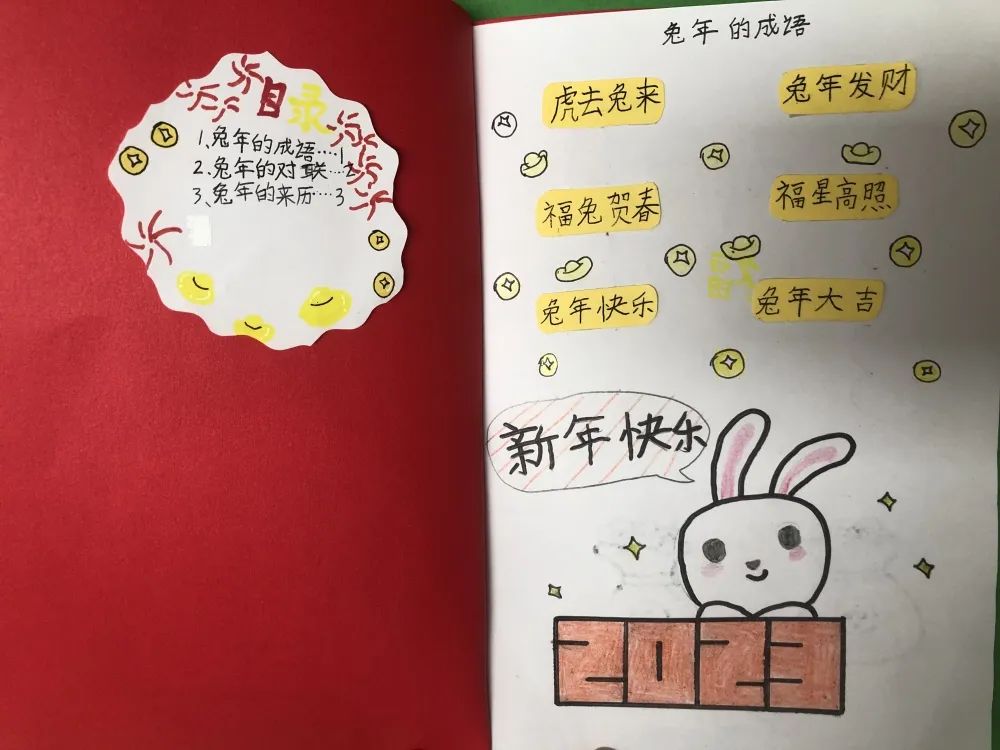 目录
1、兔年的成语····1
2、兔年的对联···2
3、兔年的来历····3
兔年的成语
虎去兔来
兔年发财
福兔贺春
福星高照
兔年快乐
兔年大吉
新年快乐
2023